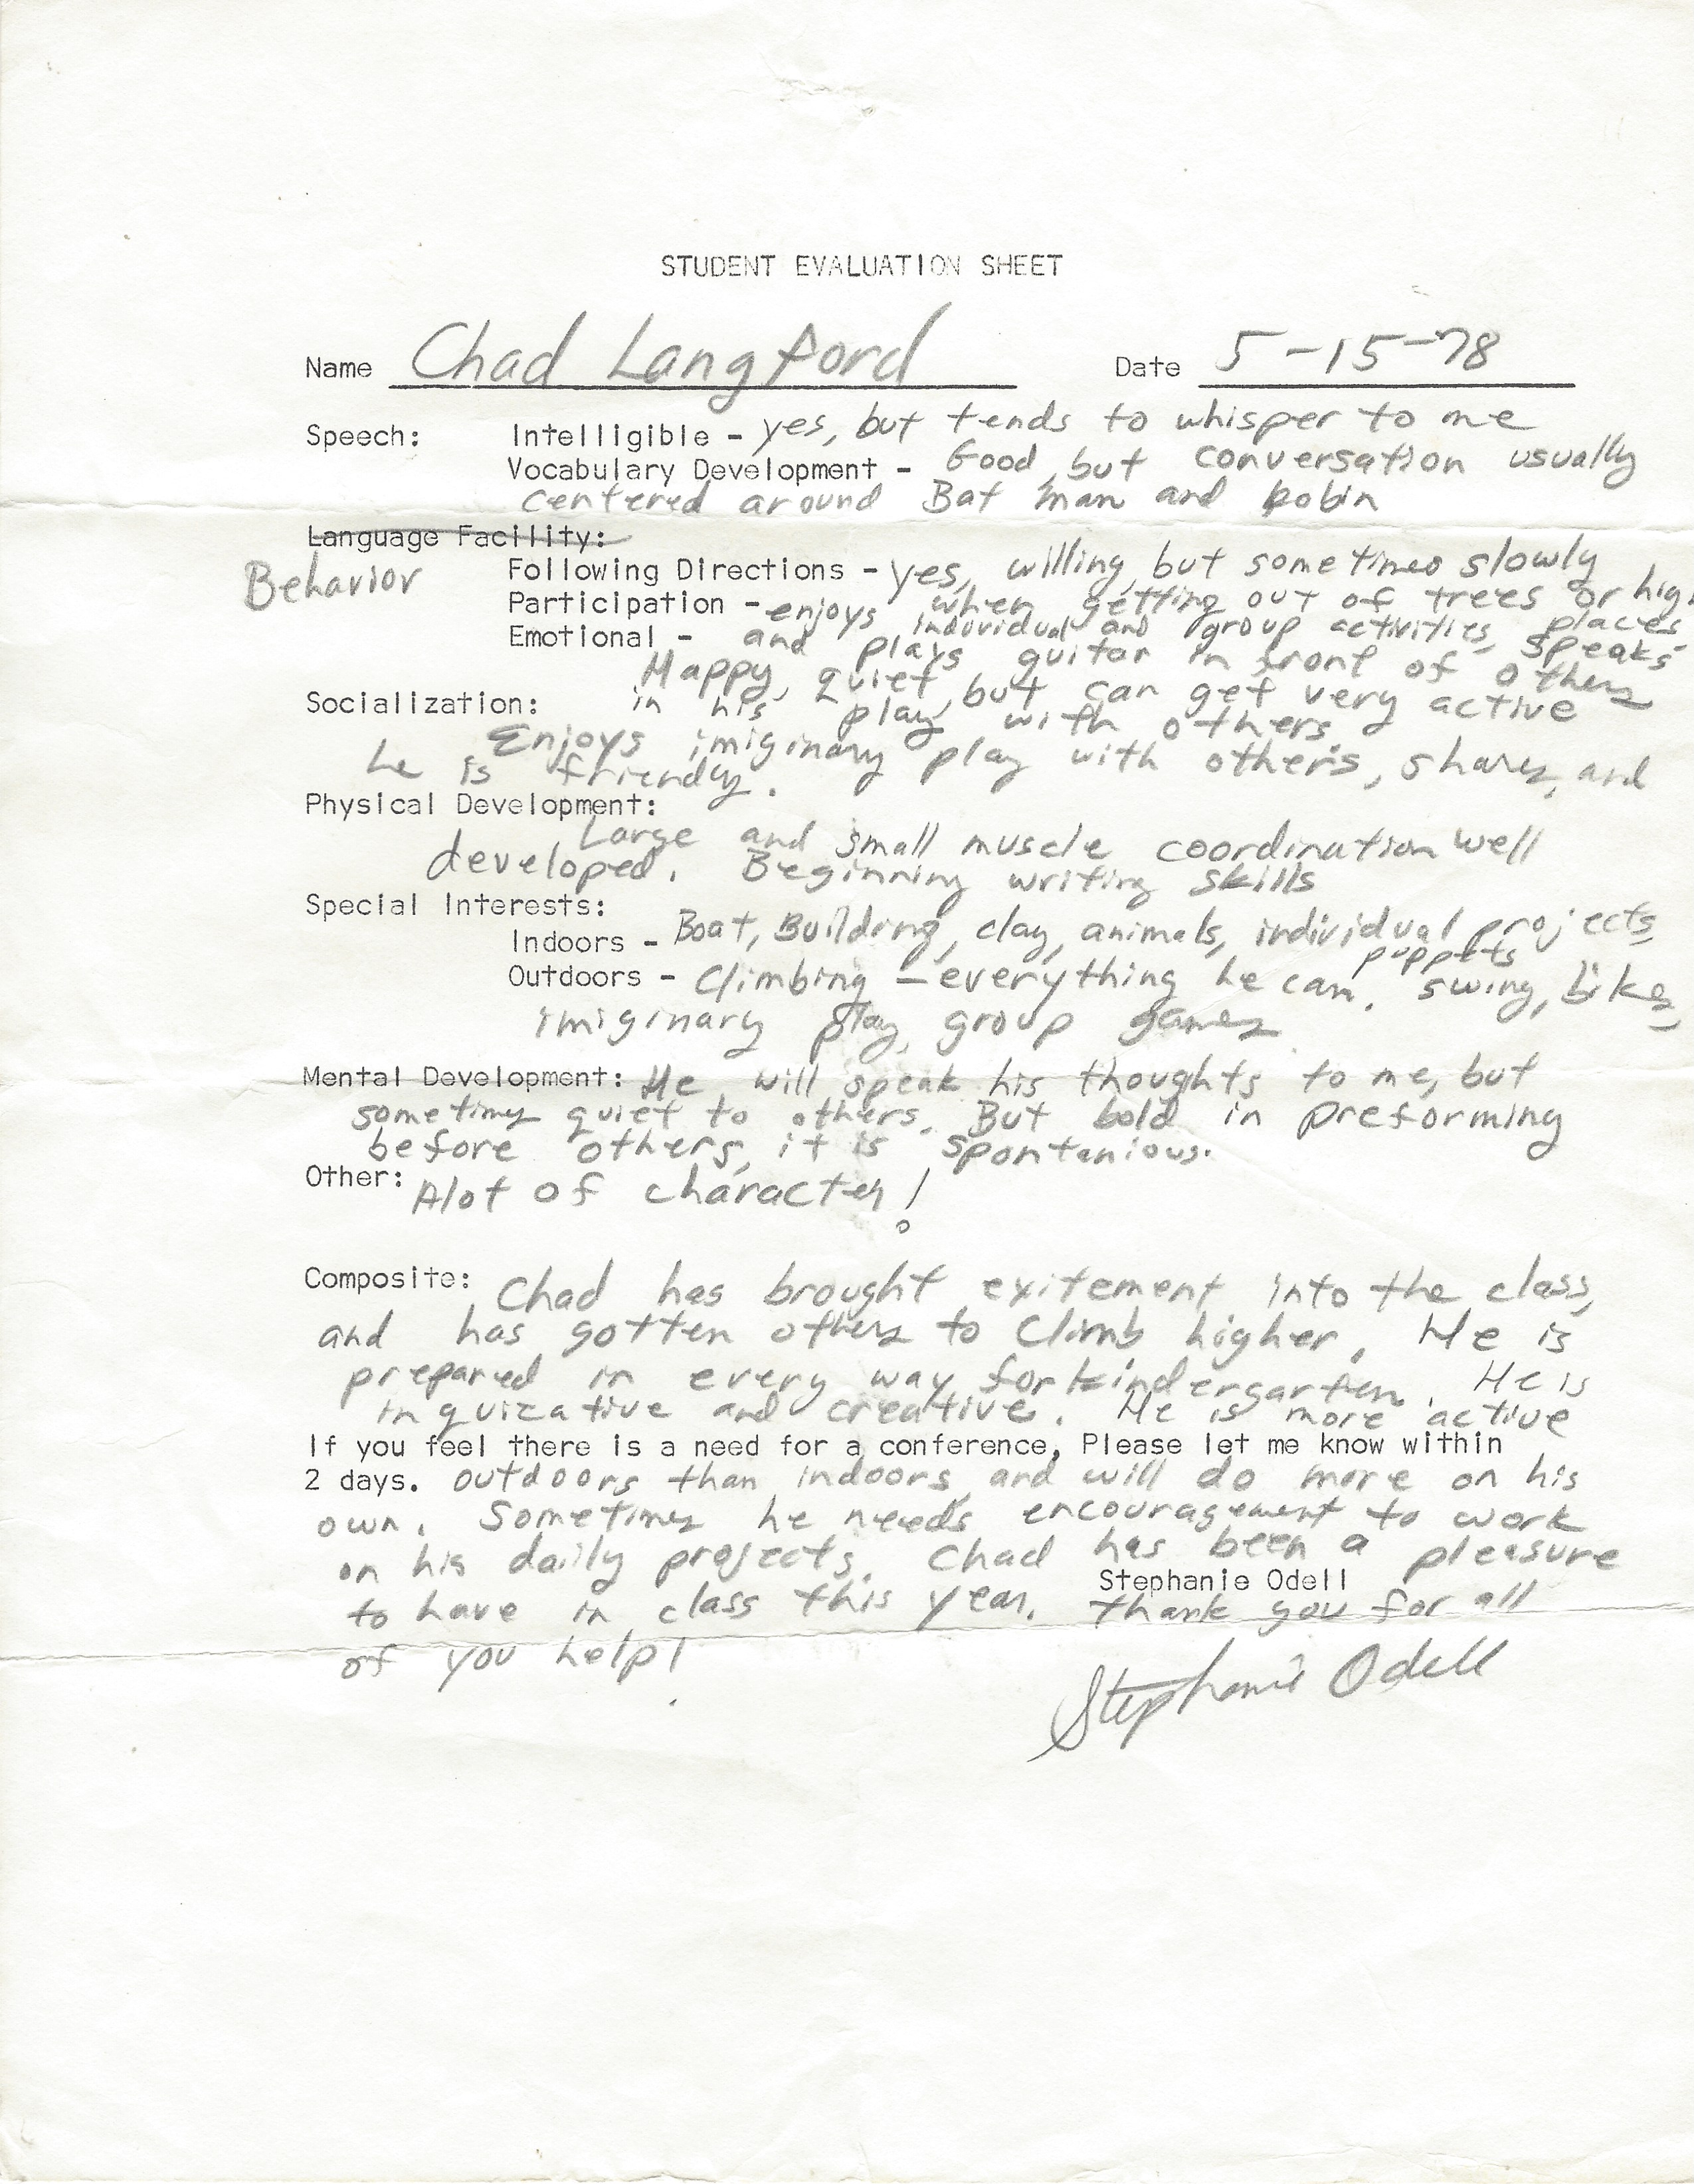 STUDENT EVALUATION SHEET
Name Chad Langford Date 5-15-78
Speech: Intelligible - yes, but tends to whisper to me
Vocabulary Development - Good, but conversation usually
centered around Bat man and Robin
Language Facility:
Behavior
Following Directions - yes, willing, but sometimes slowly
when getting out of trees or high
places
Participation - enjoys individual and group activities, speaks
and plays guitar in front of others
Emotional -
Happy, quiet, but can get very active
in his play with others.
Socialization:
Enjoys imiginary play with others, shares, and
he is friendly.
Physical Development:
Large and small muscle coordination well
developed. Beginning writing skills
Special Interests:
Indoors - Boat, Building, clay, animals, individual projects,
puppets
Outdoors - Climbing - everything he can. swing, bikes,
imiginary play, group games
Mental Development: He will speak his thoughts to me, but
sometimes quiet to others. But bold in preforming
before others, it is spontanious.
Other: Alot of character!
Composite: Chad has brought exitement into the class,
and has gotten others to climb higher. He is
prepared in every way for kindergarten. He is
inquizative and creative. He is more active
If you feel there is a need for a conference, Please let me know within
2 days. outdoors than indoors, and will do more on his
own. Sometimes he needs encouragement to work
on his daily projects. Chad has been a pleasure
Stephanie Odell
to have in class this year. Thank you for all
of you help!
Stephanie Odell